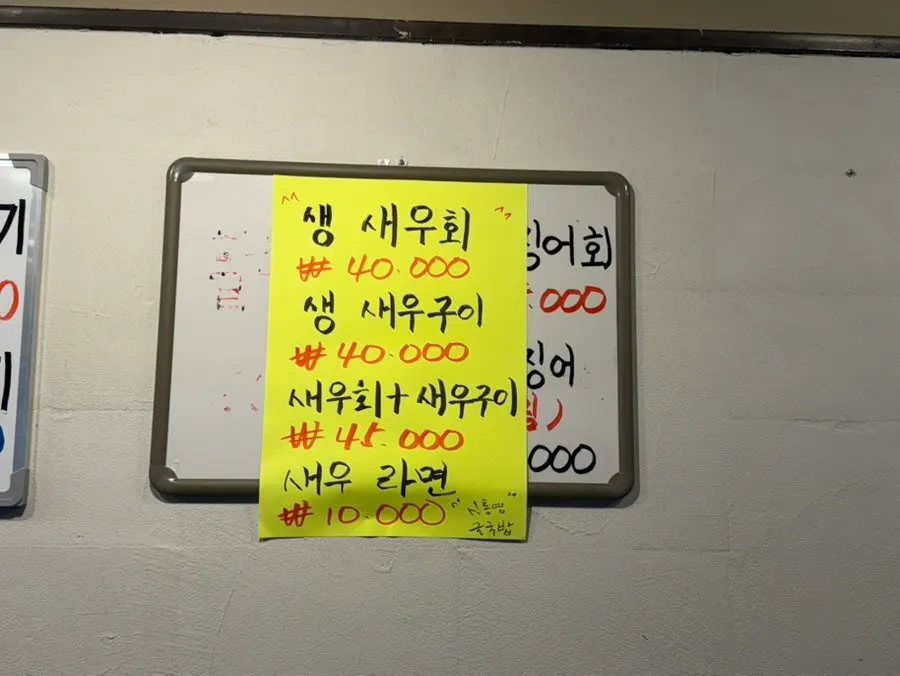 기
0
생 새우회
₩ 40.000
생 새우구이
₩ 40.000
새우회+새우구이
₩ 45.000
새우 라면
₩ 10.000
신통영
굴국밥
징어회
.000
징어
)
000